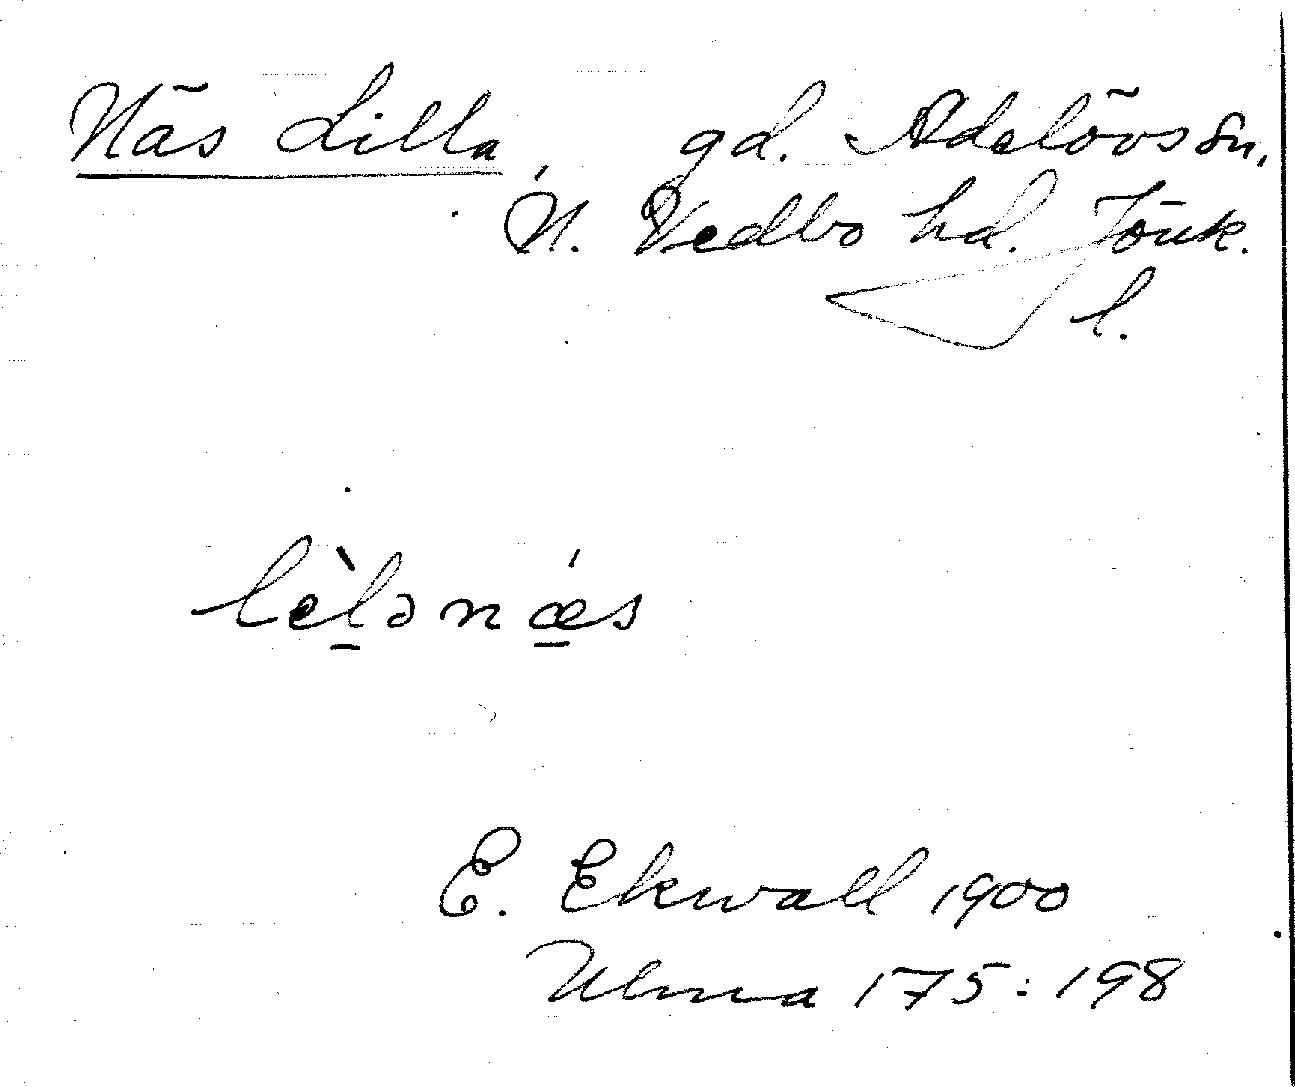 Näs Lilla, gd. Adelövs sn,
N. Vedbo hd. Jönk.
l.
lèl̠ənǽ̠s
E. Ekwall 1900
Ulma 175:198